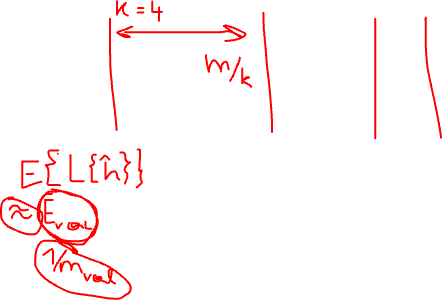 k=4
m/k
E{L{ĥ}}
≈ E_val
1/m_val